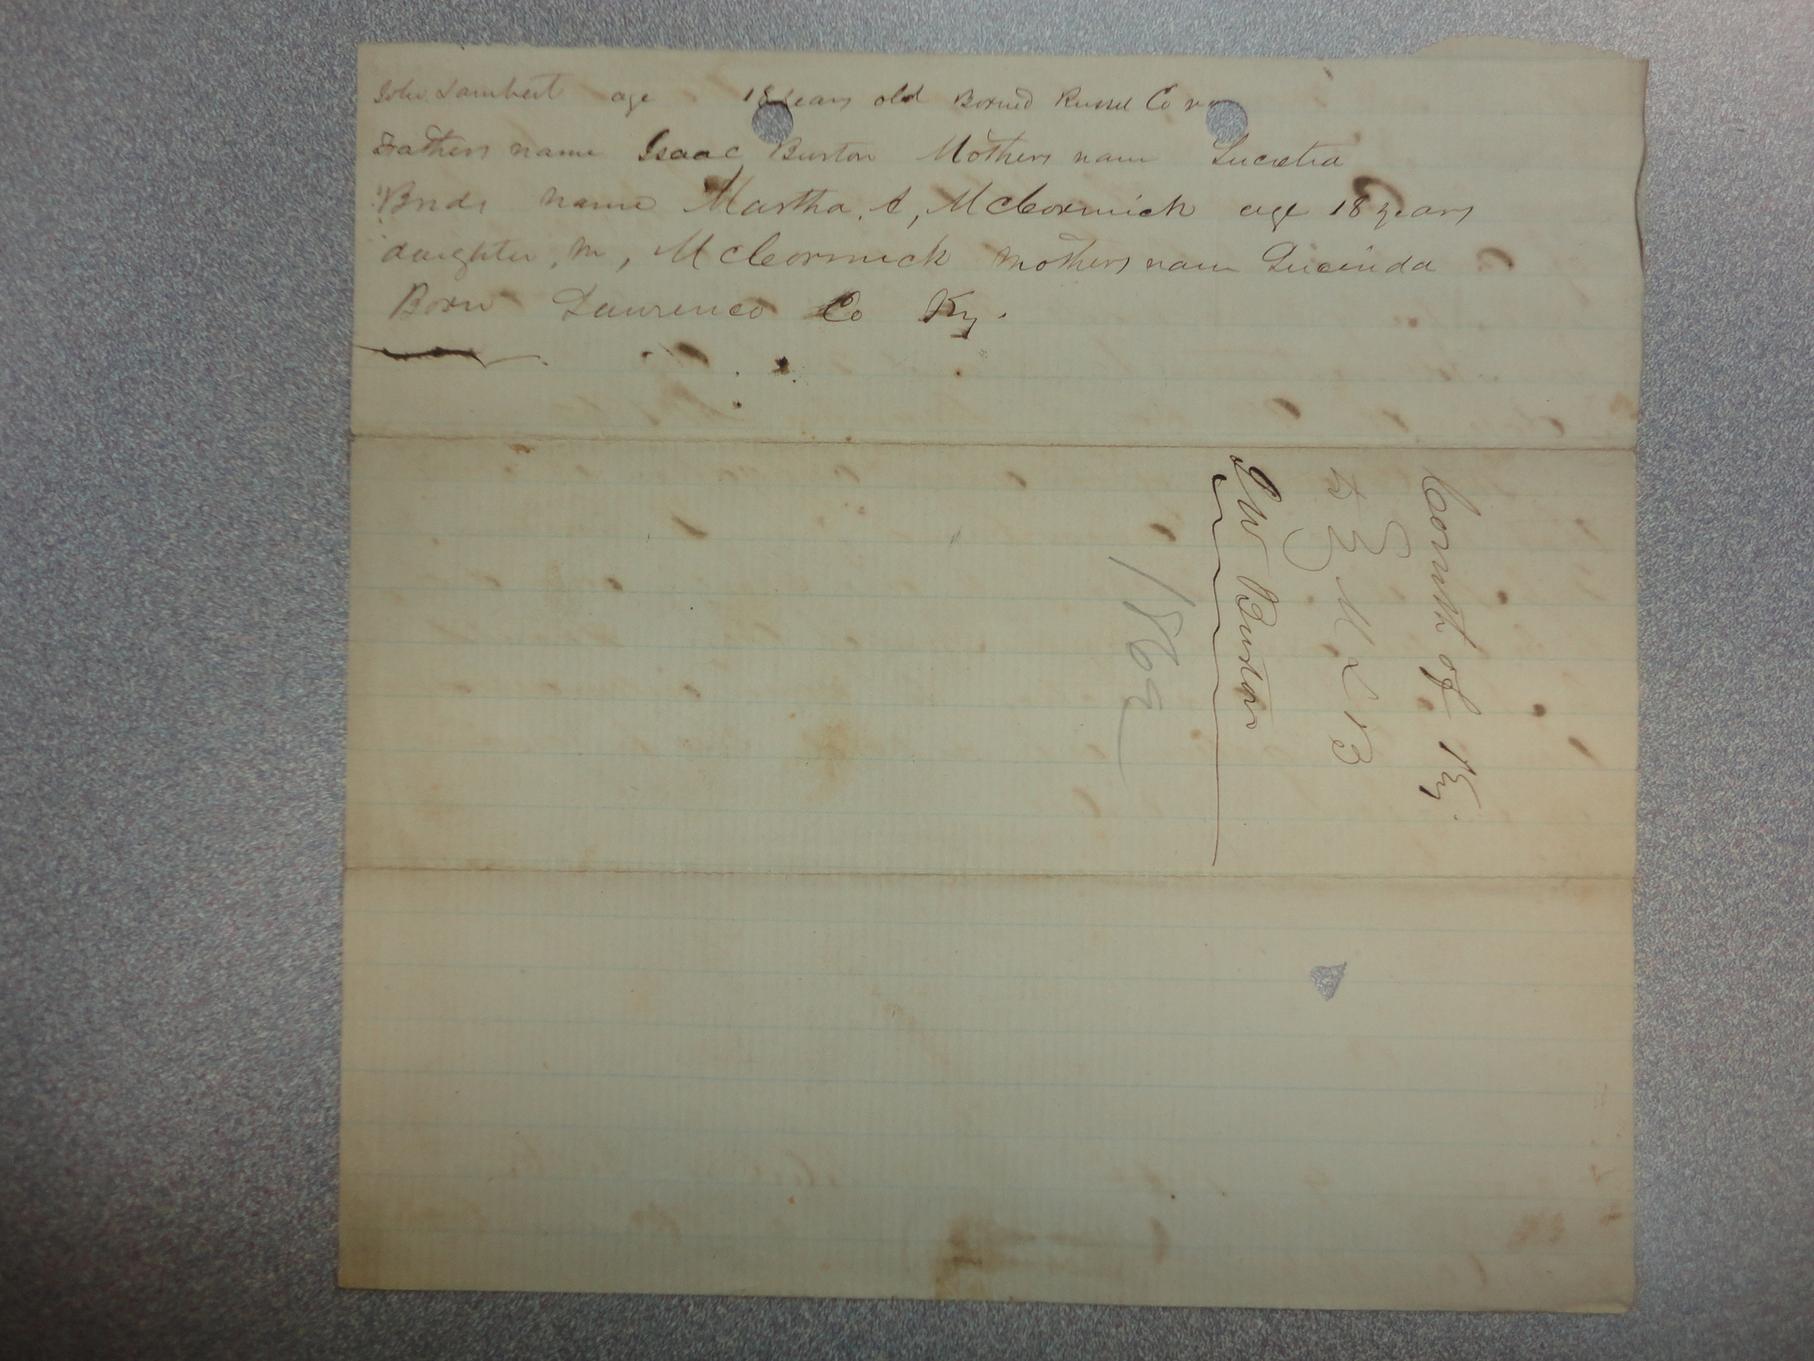 John Lambert age 18 years old Borned Russel Co
Fathers name Isaac Burton Mothers nam Lucretia
Brids name Martha, A, McCormick age 18 years
daughter, M, McCormick Mothers nam Lucinda
Born Lawrence Co Ky.
Comth of Ky.
to M L B
W Burton
1869